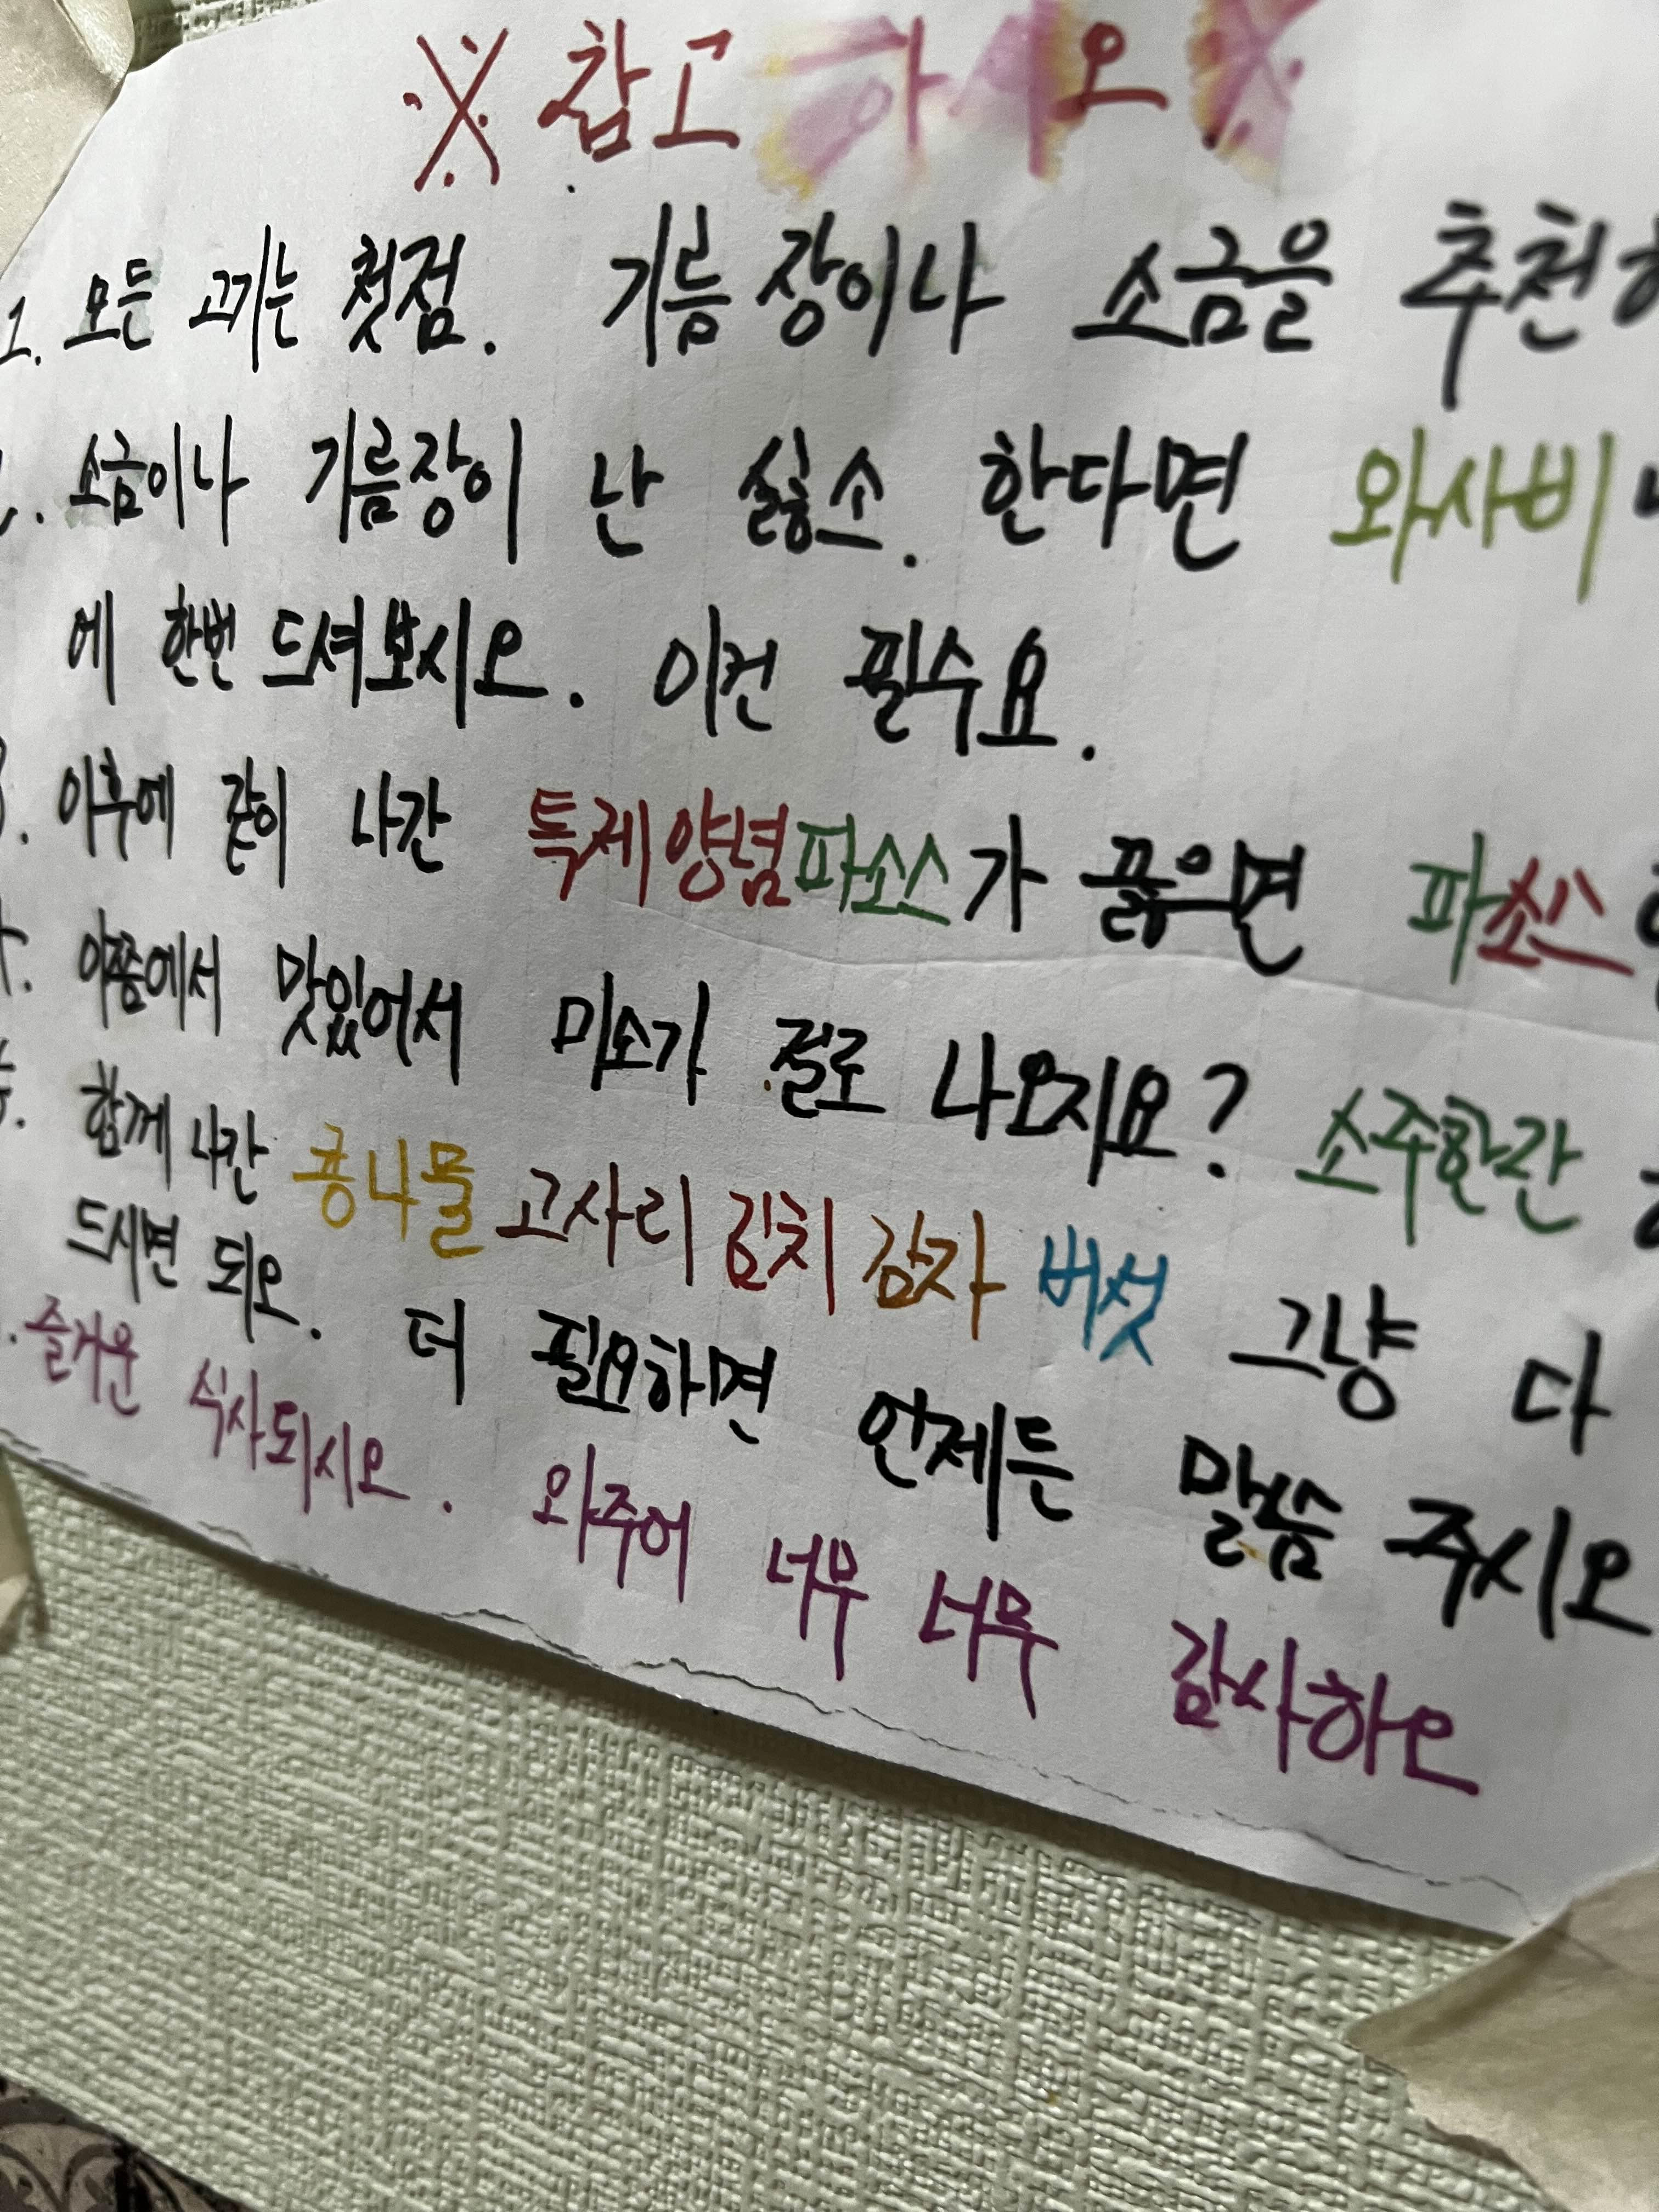 ※ 참고하시오 ※
1. 모든 고기는 첫점. 기름장이나 소금을 추천
소금이나 기름장이 난 싫소. 한다면 와사비
에 한번 드셔보시오. 이건 필수요.
3. 이후에 같이 나간 특제양념파소스가 끓으면 파소스
이쯤에서 맛있어서 미소가 절로 나오지요? 소주한잔
함께 나간 콩나물 고사리 김치 감자 버섯 그냥 다
드시면 되오. 더 필요하면 언제든 말씀 주시오
즐거운 식사되시오. 와주어 너무 너무 감사하오